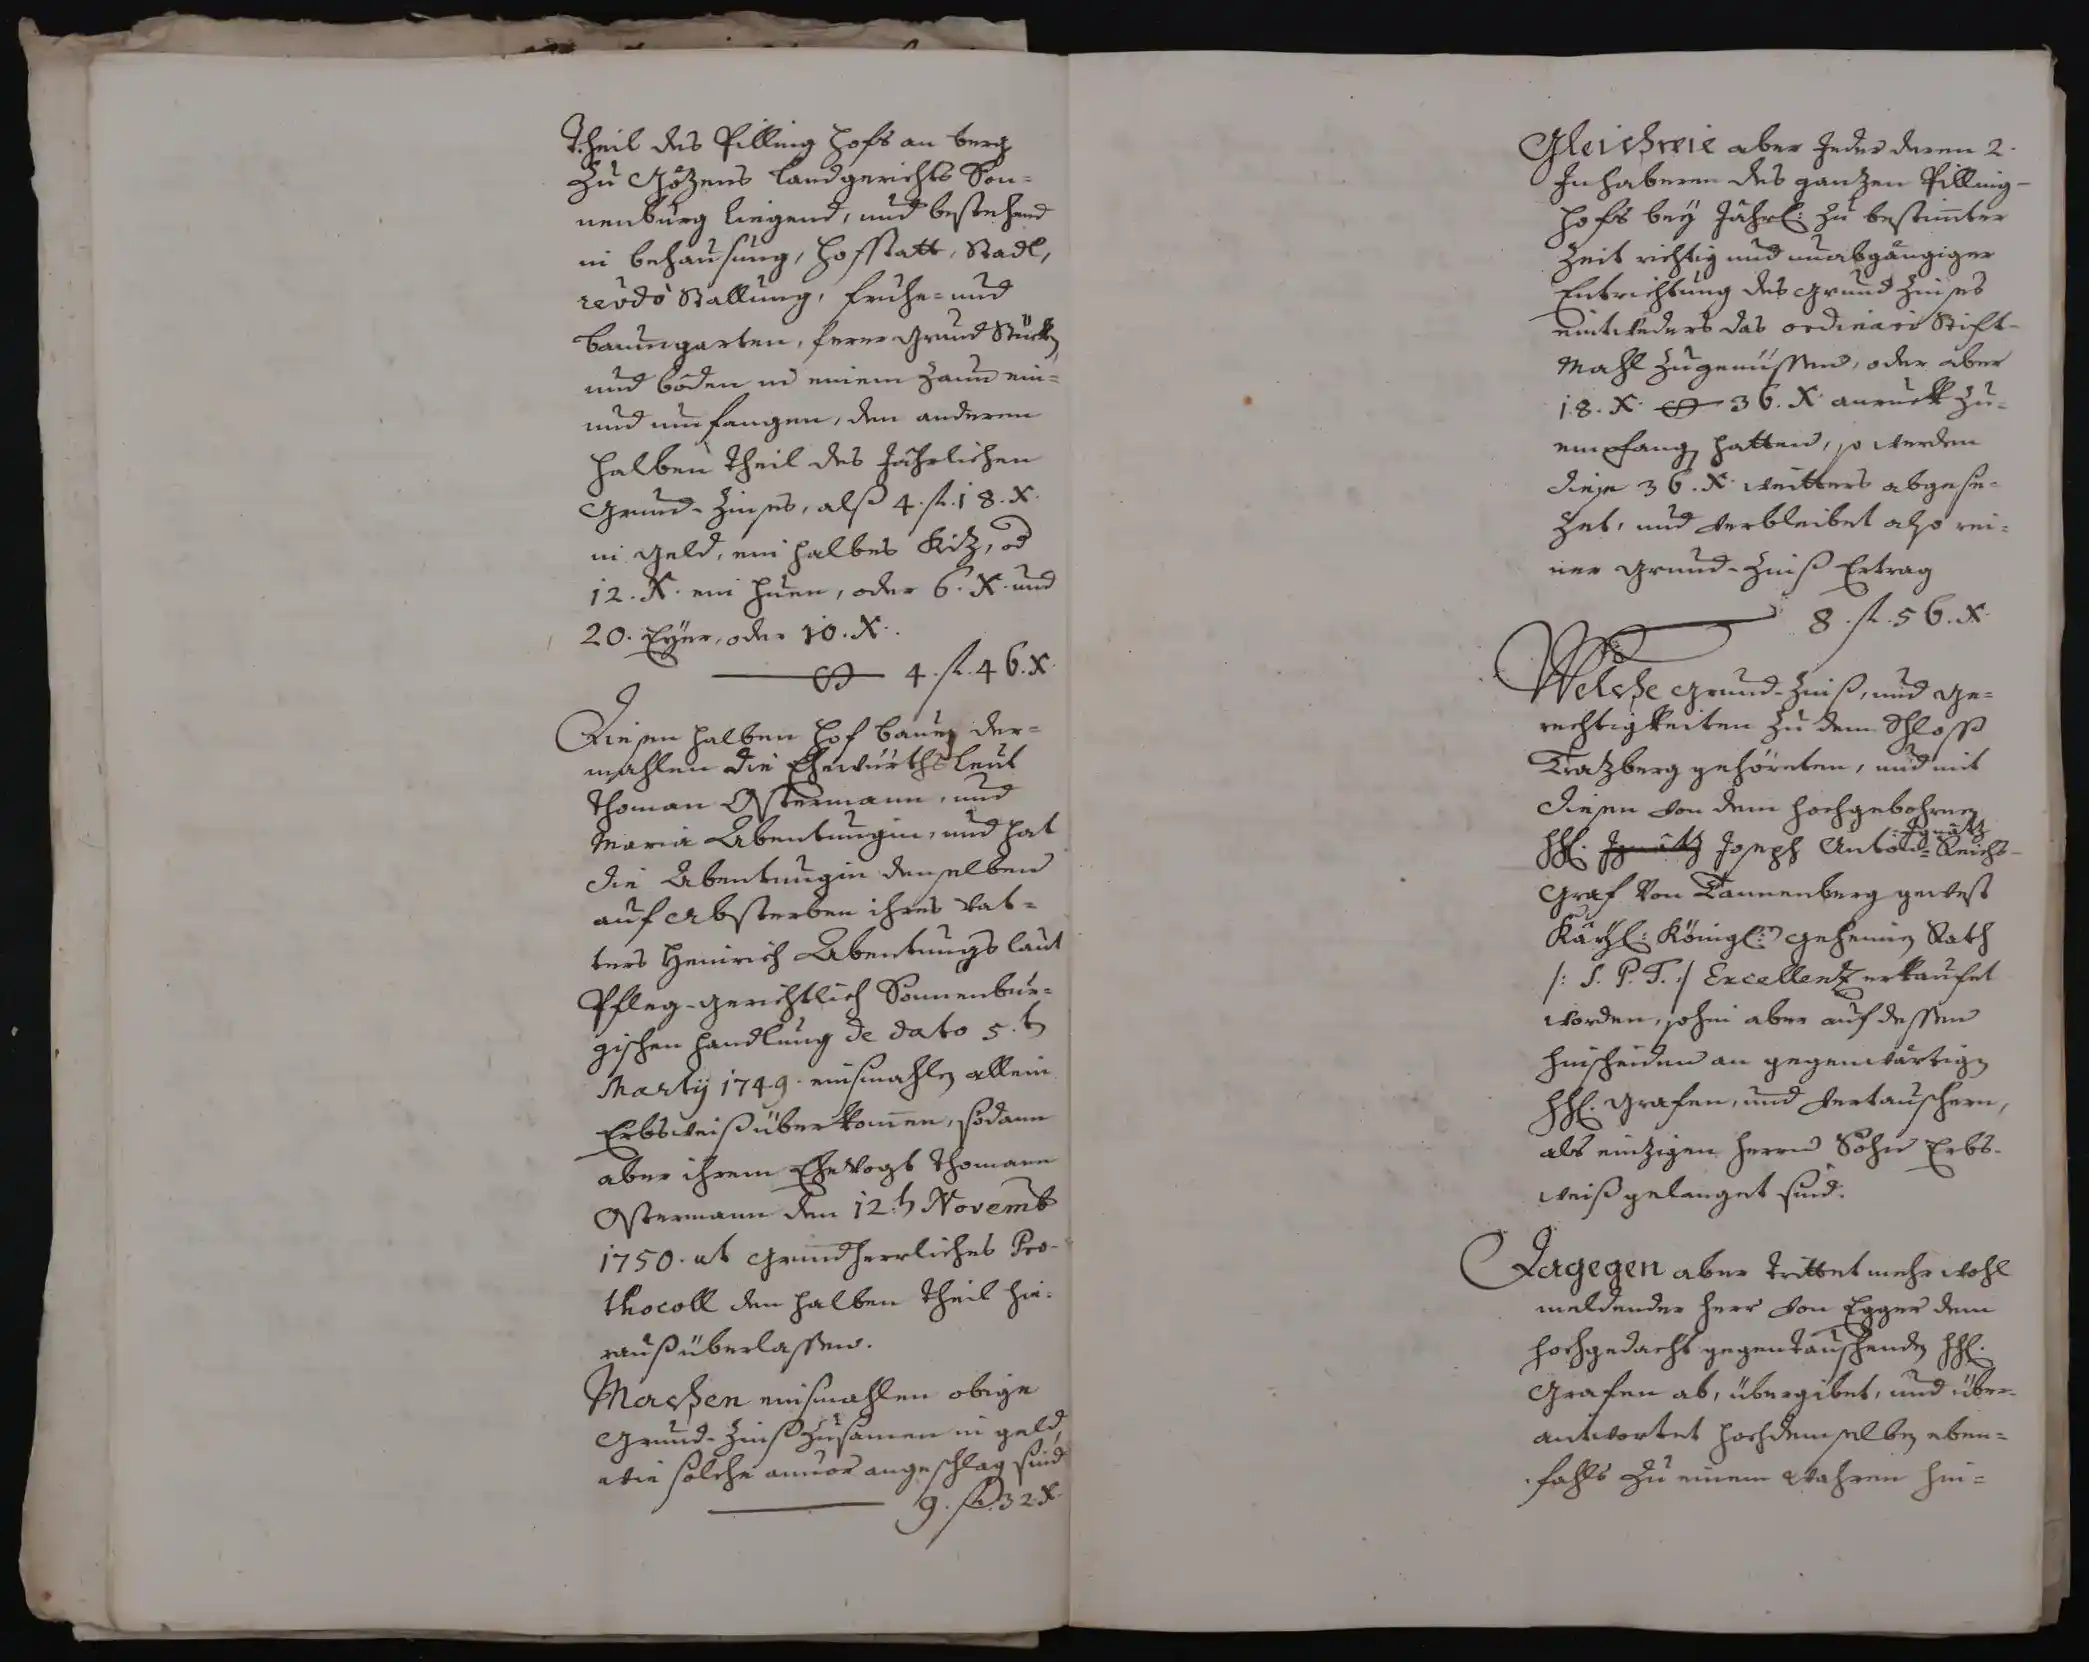 Theil des Pilling hofs an berg
Zu Gözens Landgerichts Son-
nenburg ligend, und bestehend
in behausung, hofstatt, Stadl,
revdo Stallung, Fruhe- und
baumgarten, ferer Grund Stuckh
und böden in einem Zaun ein-
und umfangen, den anderen
halben Theil des Jährlichen
Grund-Zinses, alß 4. fl. 18. X.
in Geld, ein halbes Kiz, od
12. X. ein huen, oder 6. X. und
20. Eÿer, oder 10. X.
4. fl. 46. X
Diesen halben hof bauen der-
mahlen die Ehewürths Leut
Thoman Ostermann, und
Maria Abentungin, und hat
die Abentungin denselben
auf Absterben ihres Vat-
ters Heinrich Abentungs laut
Pfleg-gerichtlich Sonnenbur-
gischen handlung de dato 5. t
Martÿ 1749. einsmahls allein
Erbsweiß überkomen, sodann
aber ihrem Ehevogt Thomann
Ostermann den 12. t Novemb
1750. ut Grundherrliches Pro-
thocoll den halben Theil hie-
rauß überlassen.
Machen einsmahlen obige
Grund-Zinß zusamen in geld,
wie solche anvor angeschlag sind
9. fl. 32 X
Gleichwie aber Jeder deren 2.
Inhaberen des ganzen Pilling-
hofs beÿ Jährl: zu bestimter
Zeit richtig und unabgängiger
Entrichtung des Grund Zinses
eintweders das ordinari Stift-
Mahl zugenüssen, oder aber
18. X. 36. X. anruckh zu-
empfang hatten, so werden
diese 36. X. weitters abgese-
zet, und verbleibet also rei-
ner Grund-Zinß Ertrag
8. fl. 56. X.
Welche Grund-Zinß, und Ge-
rechtigkeiten zu dem Schloss
Tratzberg gehöreten, und mit
diesen von dem hochgebohrnen
Ignätz
hhl. Ignätz Joseph Anton- Reichs-
Graf Von Tannenberg gewest
Käysl: Königl: geheimen Rath
/: S. P. T. :/ Excellentz erkaufet
worden, sohin aber auf dessen
hinscheiden an gegenwärtigen
hhl. Grafen, und Vertauschern,
als einzigen herrn Sohn Erbs-
weiß gelanget sind.
Dagegen aber trittet mehr wohl
meldender herr von Egger dem
hochgedacht gegentauschenden hhl.
Grafen ab, übergibet, und über-
antwortet hochdemselben eben-
fahls zu einem wahren hin-